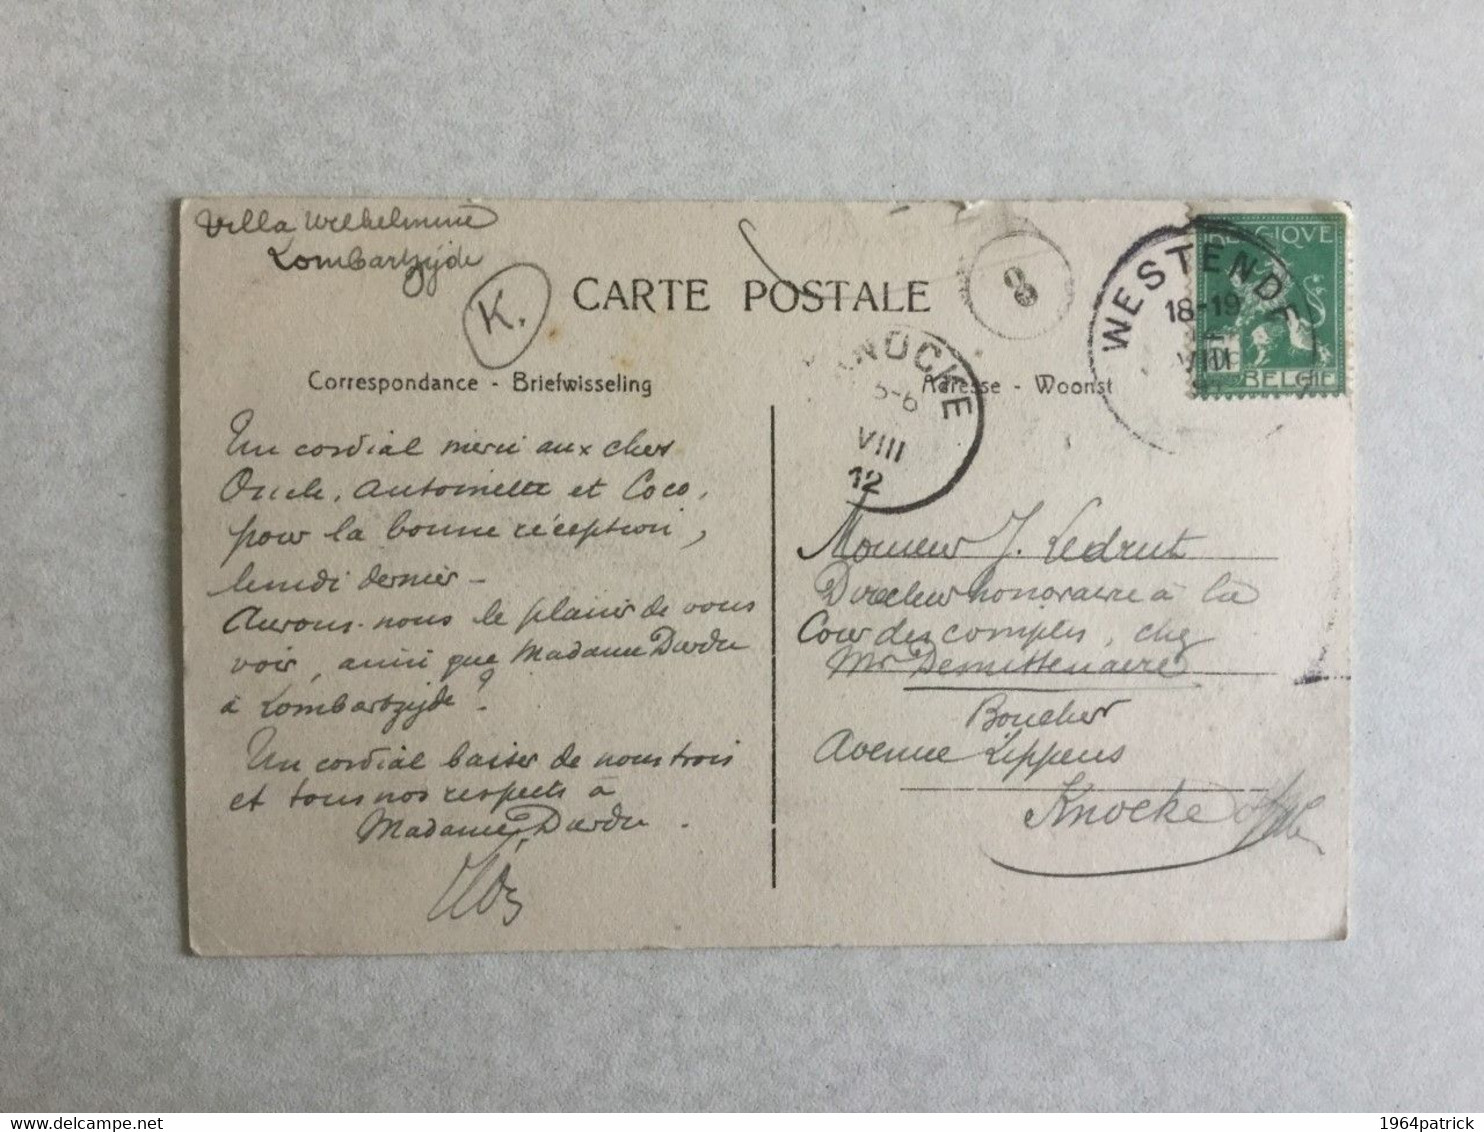 Villa Wilhelmine
Lombartzyde
K.
CARTE POSTALE
8
WESTENDE
18-19
VIII
BELGIQUE
BELGIË
KNOCKE
5-6
VIII
12
Correspondance - Briefwisseling
Adresse - Woonst
Un cordial merci aux chers
Oncle, Antoinette et Coco,
pour la bonne réception,
lundi dernier -
Aurons-nous le plaisir de vous
voir, ainsi que Madame Durdu
à Lombartzyde?
Un cordial baiser de nous trois
et tous nos respects à
Madame Durdu.
Monsieur J. Ledrut
Directeur honoraire à la
Cour des comptes, chez
Mr Demittenaere
Boucher
Avenue Lippens
Knocke
1964patrick
delcampe.net